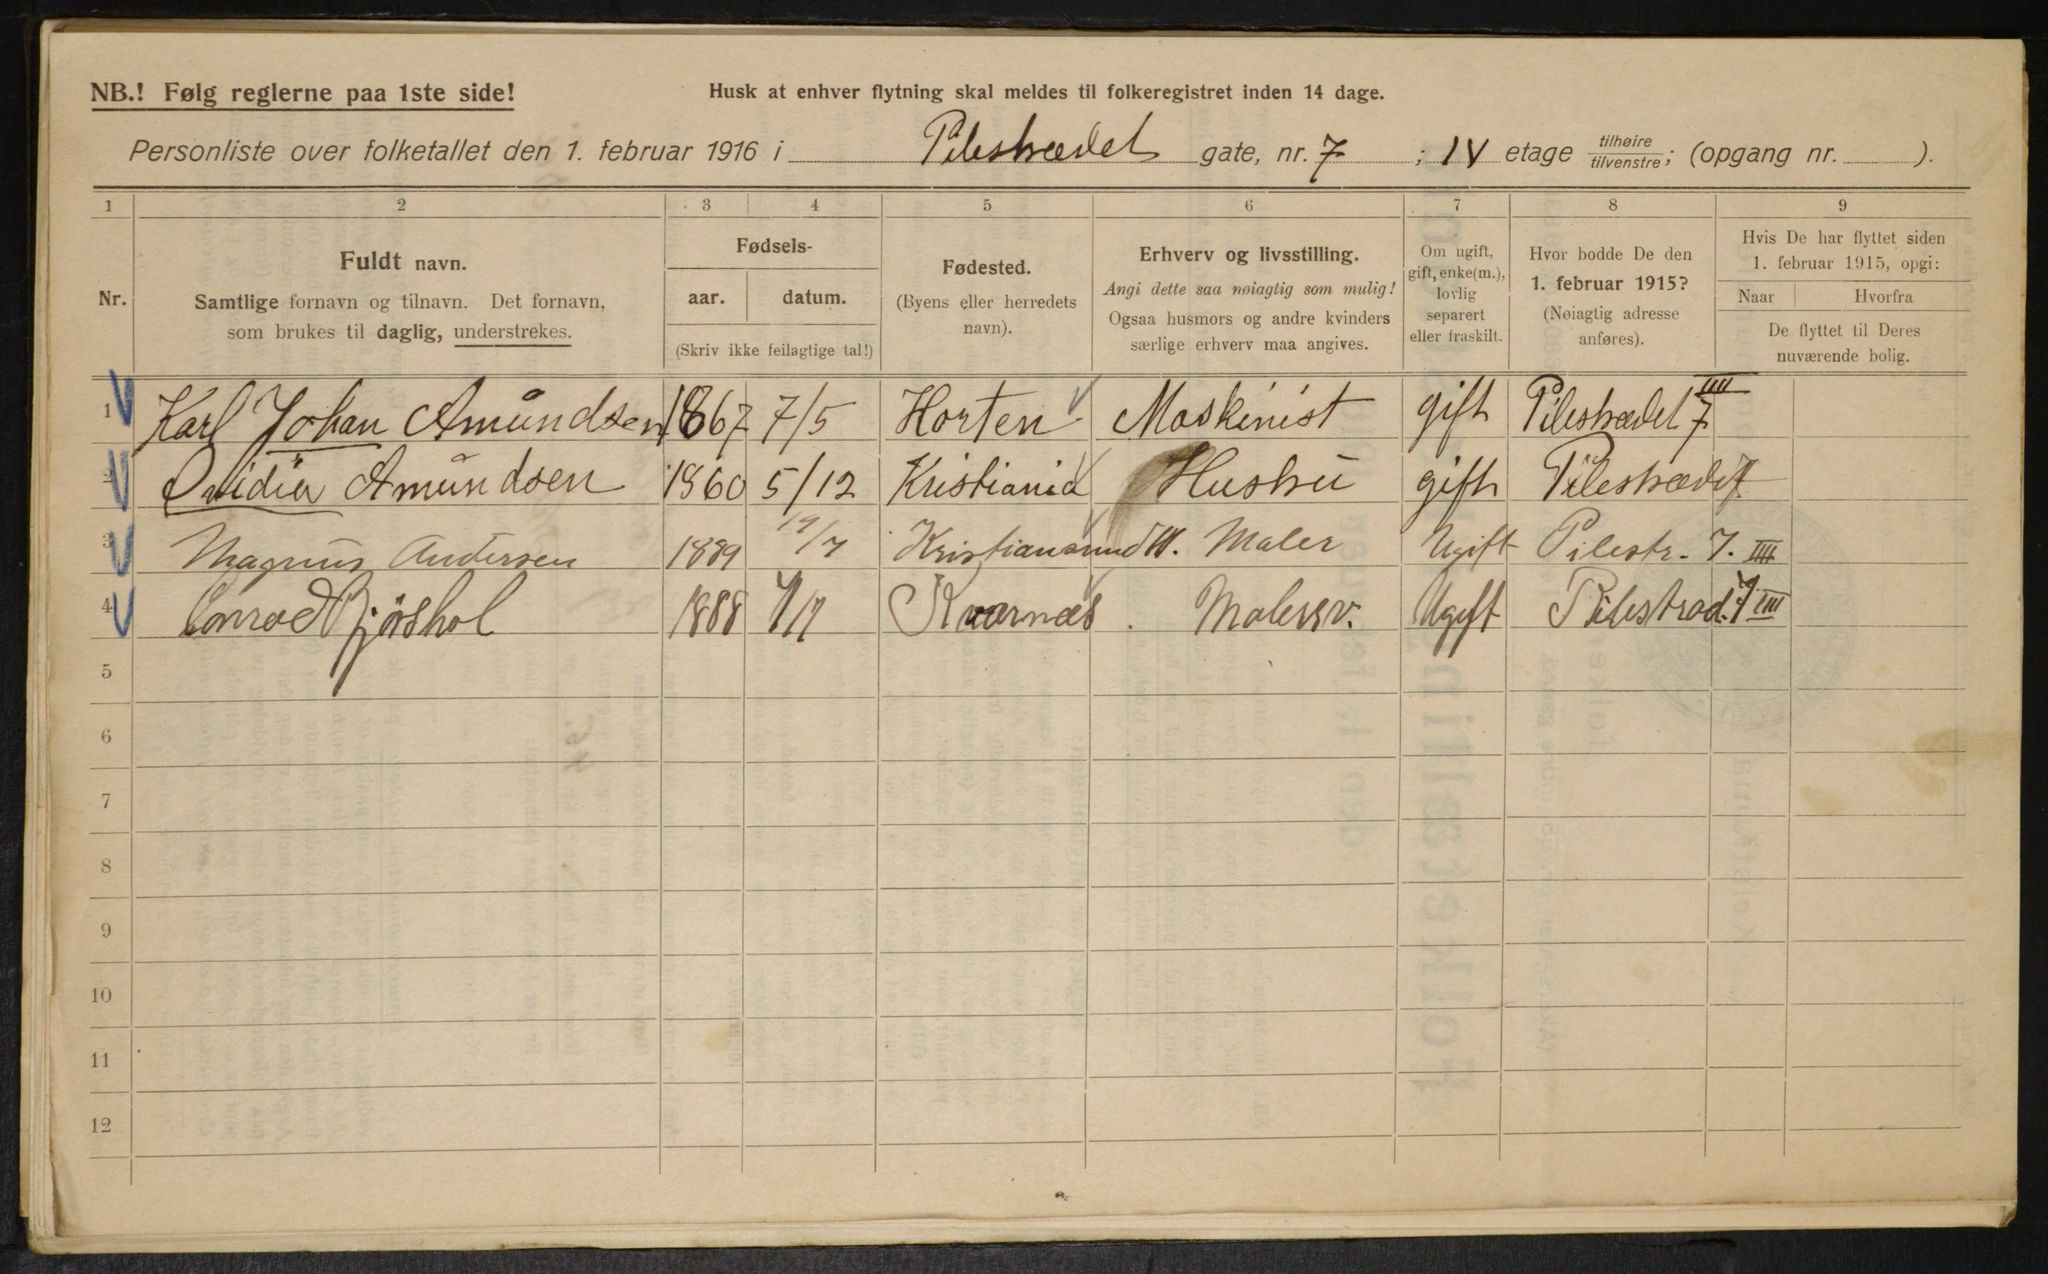 NB.! Følg reglerne paa 1ste side!
Husk at enhver flytning skal meldes til folkeregistret inden 14 dage.
Personliste over folketallet den 1. februar 1916 i Pilestrædet gate, nr. 7 ; IV etage tilhøire/tilvenstre; (opgang nr. ).
1 2 3 4 5 6 7 8 9
Nr.
Fuldt navn.
Samtlige fornavn og tilnavn. Det fornavn,
som brukes til daglig, understrekes.
Fødsels-
aar. datum.
(Skriv ikke feilagtige tal!)
Fødested.
(Byens eller herredets
navn).
Erhverv og livsstilling.
Angi dette saa nøiagtig som mulig!
Ogsaa husmors og andre kvinders
særlige erhverv maa angives.
Om ugift,
gift, enke(m.),
lovlig
separert
eller fraskilt.
Hvor bodde De den
1. februar 1915?
(Nøiagtig adresse
anføres).
Hvis De har flyttet siden
1. februar 1915, opgi:
Naar Hvorfra
De flyttet til Deres
nuværende bolig.
1 Karl Johan Amundsen 1867 7/5 Horten Maskinist gift Pilestrædet 7 IIII
2 Ovidia Amundsen 1860 5/12 Kristiania Hustru gift Pilestrædet 7
3 Magnus Andersen 1889 19/7 Kristiansund N. Maler Ugift Pilestr. 7. IIII
4 Conrad Bjöshol 1888 Kvarnæs Malersv. Ugift Pilestræd. 7 IIII
5
6
7
8
9
10
11
12